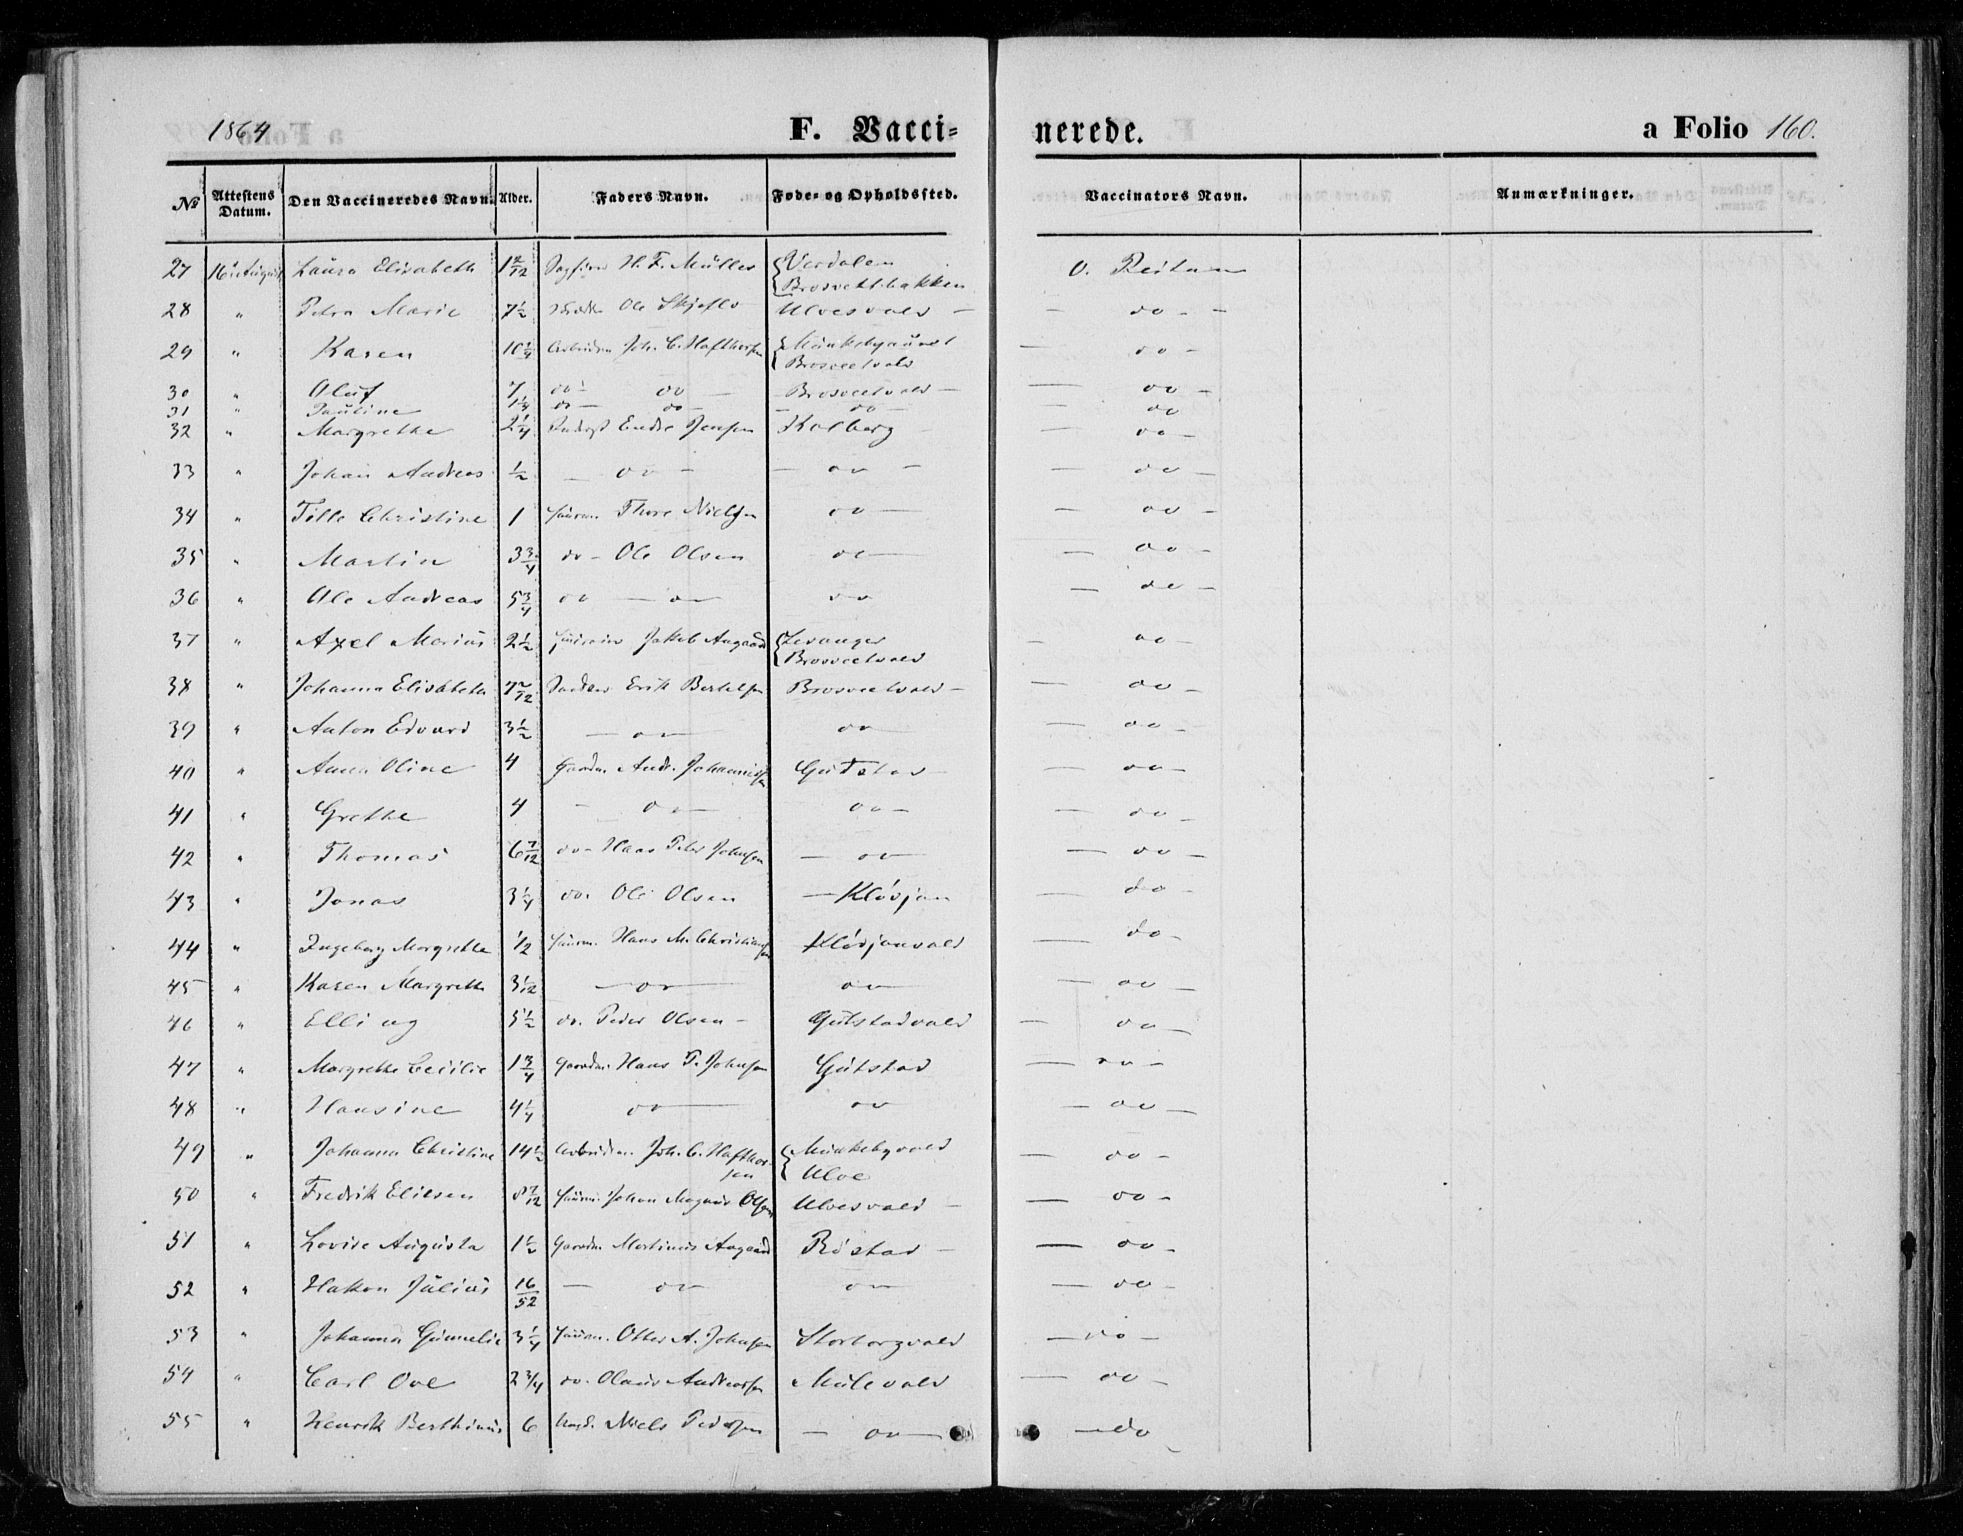 1864 F. Vacci= nerede. a Folio 160.
№ Attestens Datum. Den Vaccineredes Navn. Alder. Faders Navn. Føde= og Opholdssted. Vaccinators Navn. Anmærkninger.
27 16 August Laura Elisabeth H. F. Müller Verdalen O. Reitan
28 " Petra Marie 7½ Ole Skjeflo Ulvesvald — — do. —
29 " Karen 10¼ Joh. C. Hafthorsen — do —
30 " Oluf 7 do do Brosveetvald — — do —
31 " Pauline 1¼ do — do — — do — — do
32 " Margrethe 2¼ Endre Jensen Kolberg — do —
33 " Johan Andreas ½ — do — — do — — do —
34 " Tille Christine 1 Huusm. Thore Nielsen do — — do —
35 " Martin 3¾ do — Ole Olsen do — — do —
36 " Ole Andreas 5¾ do — do — do — do —
37 " Axel Marius 2½ Jakob Aagaard { Levanger Brosveetvald — do —
38 " Johanna Elisabeth 7 2/12 Erik Bertelsen Brosveetvald — — do —
39 " Anton Edvard 3½ — do — do — do —
40 " Anna Oline 4 Gaardm. Andr. Johannissen Gutstad — — do —
41 " Grethe 4 — do — do — — do —
42 " Thomas 6 7/12 do — Hans Peter Johnsen — do — — do —
43 " Jonas 3¼ do. Ole Olsen — Kløvjan — do —
44 " Ingeborg Margrethe ½ Huusm. Hans M. Christiansen Kløvjanvald — do —
45 " Karen Margrethe 3 1/12 — do — do — — do —
46 " Elling 5½ do. Peder Olsen — Gutstadvald — do —
47 " Margrethe Cecilie 1¾ Gaardm. Hans P. Johnsen Gutstad — do —
48 " Hansine 4¼ do — do — do —
49 " Johanna Christine 14½ Joh. C. Hafthorsen { Munkebyvald Ulve — do —
50 " Fredrik Eliesen 8 7/12 Huusm. Johan Magnus Olsen Ulvesvald — — do —
51 " Lovise Augusta 1½ Gaardm. Martinus Aagaard Røstad — — do —
52 " Hakon Julius 16/52 — do do — — do —
53 " Johanna Gunnelie 3¼ Huusm. Otter A. Johnsen Storborgvald — do —
54 " Carl Ove 2¾ do. Olaus Andreassen Mulevald — do —
55 " Henrik Berthinus 6 Niels Pedersen — do — — do —